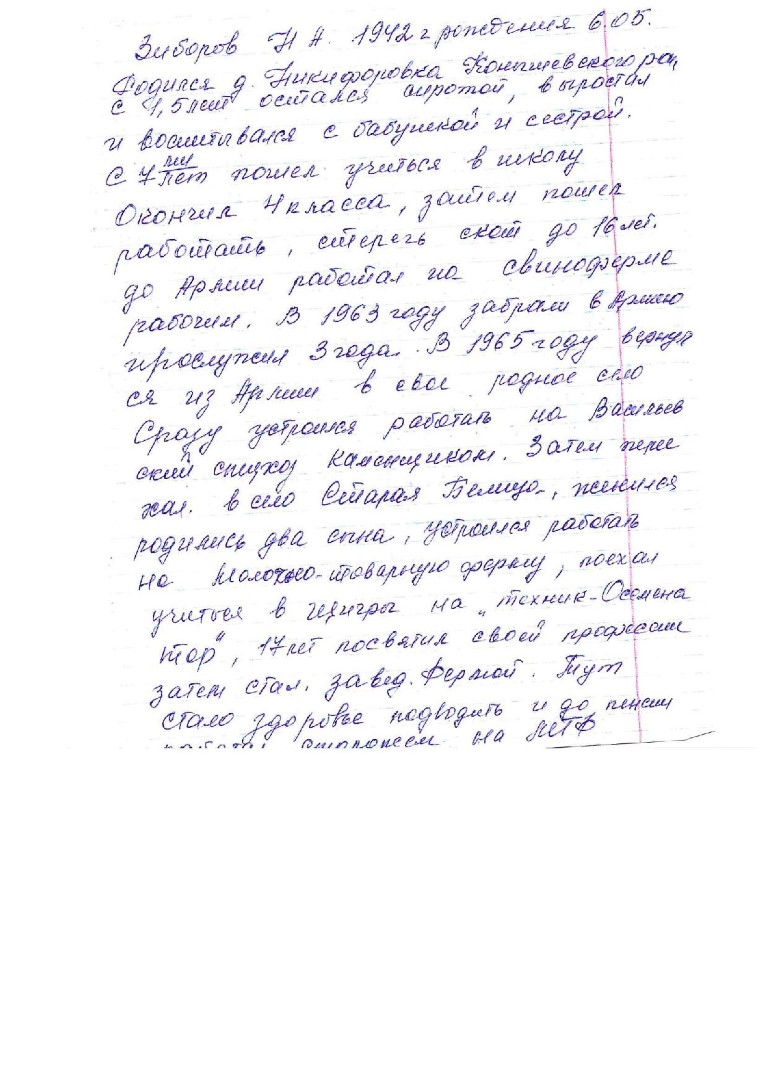 Зиборов Н А. 1942 г рождения 6.05.
Родился д. Никифоровка Конышевского рай,
с 1,5 лет остался сиротой, выростал
и воспитывался с бабушкой и сестрой.
С 7ми лет пошел учиться в школу
Окончил 4 класса, затем пошел
работать, стеречь скот до 16 лет.
до Армии работал на свиноферме
рабочим. В 1963 году забрали в Армию
прослужил 3 года. В 1965 году вернул
ся из Армии в свое родное село
Сразу устроился работать на Васильев
ский спцхоз каменщиком. Затем перее
хал. в село Старая Белица, женился
родились два сына, устроился работать
на Молочно-товарную ферму, поехал
учиться в Щигры на "техник-Осемена
тор", 17 лет посвятил своей професии
затем стал. завед. Фермой. Тут
стало здоровье подводить и до пенсии
работал сторожем на МТФ